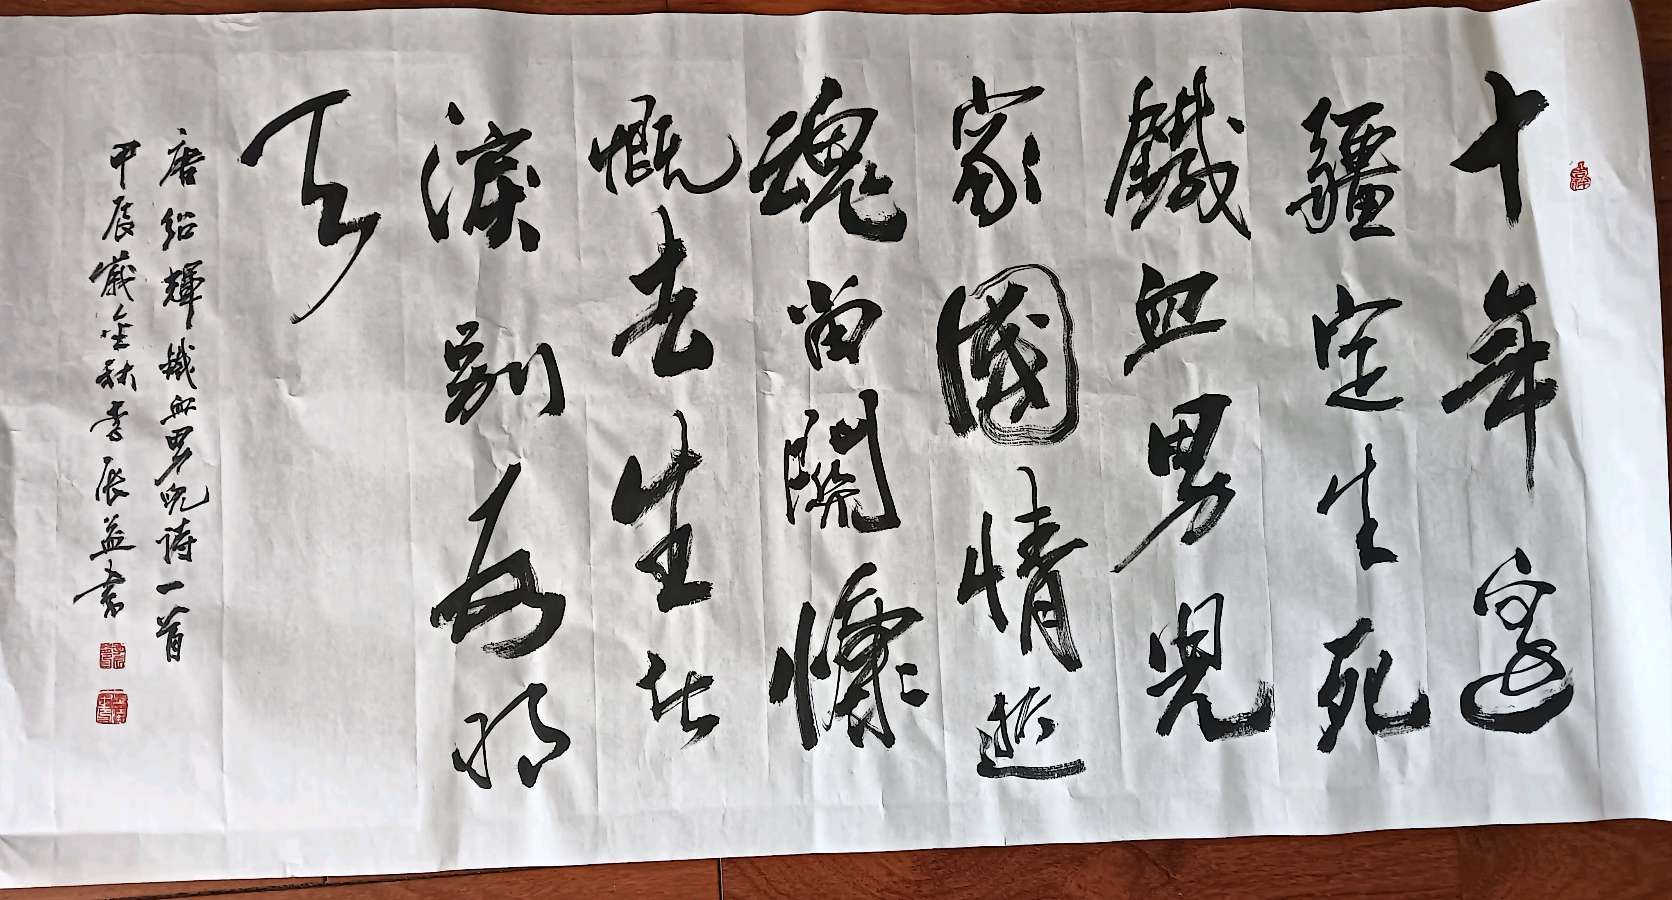 十年邊
疆定生死
鐵血男兒
家國情逝
魂留關慷
慨去生者
淚別為明
天
唐紹輝鐵血男兒詩一首
甲辰歲金秋李辰益書